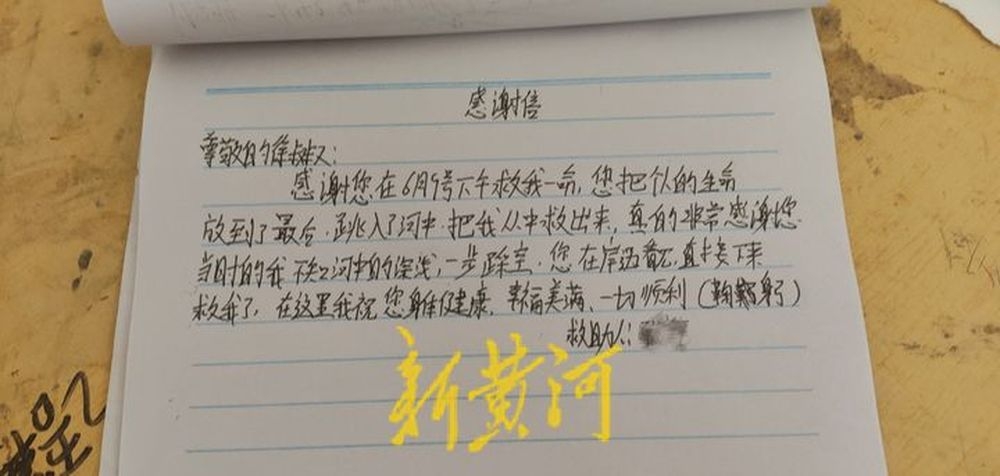 感谢信
尊敬的徐叔叔：
感谢您在6月9号下午救我一命，您把个人的生命
放到了最后，跳入了河中，把我从中救出来，真的非常感谢您.
当时的我不知河中的深浅，一步踩空，您在岸边看见直接下来
救我了，在这里我祝您身体健康，幸福美满、一切顺利（鞠躬）
救助人：
新黄河